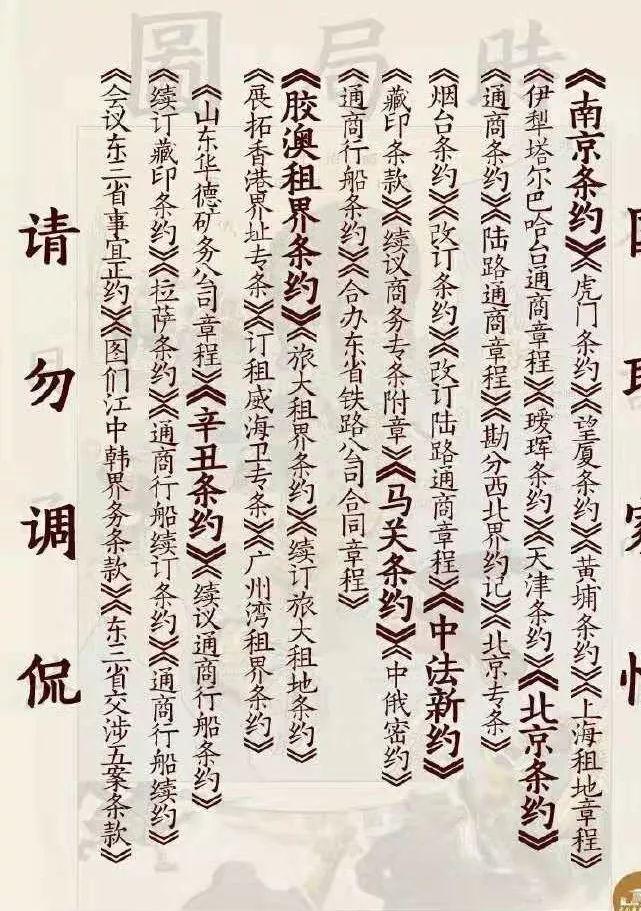 時局圖
《南京条约》《虎门条约》《望厦条约》《黄埔条约》《上海租地章程》
《伊犁塔尔巴哈台通商章程》《瑷珲条约》《天津条约》《北京条约》
《通商条约》《陆路通商章程》《勘分西北界约记》《北京专条》
《烟台条约》《改订条约》《改订陆路通商章程》《中法新约》
《藏印条款》《续议商务专条附章》《马关条约》《中俄密约》
《通商行船条约》《合办东省铁路公司合同章程》
《胶澳租界条约》《旅大租界条约》《续订旅大租地条约》
《展拓香港界址专条》《订租威海卫专条》《广州湾租界条约》
《山东华德矿务公司章程》《辛丑条约》《续议通商行船条约》
《续订藏印条约》《拉萨条约》《通商行船续订条约》《通商行船续约》
《会议东三省事宜正约》《图们江中韩界务条款》《东三省交涉五案条款》
请勿调侃